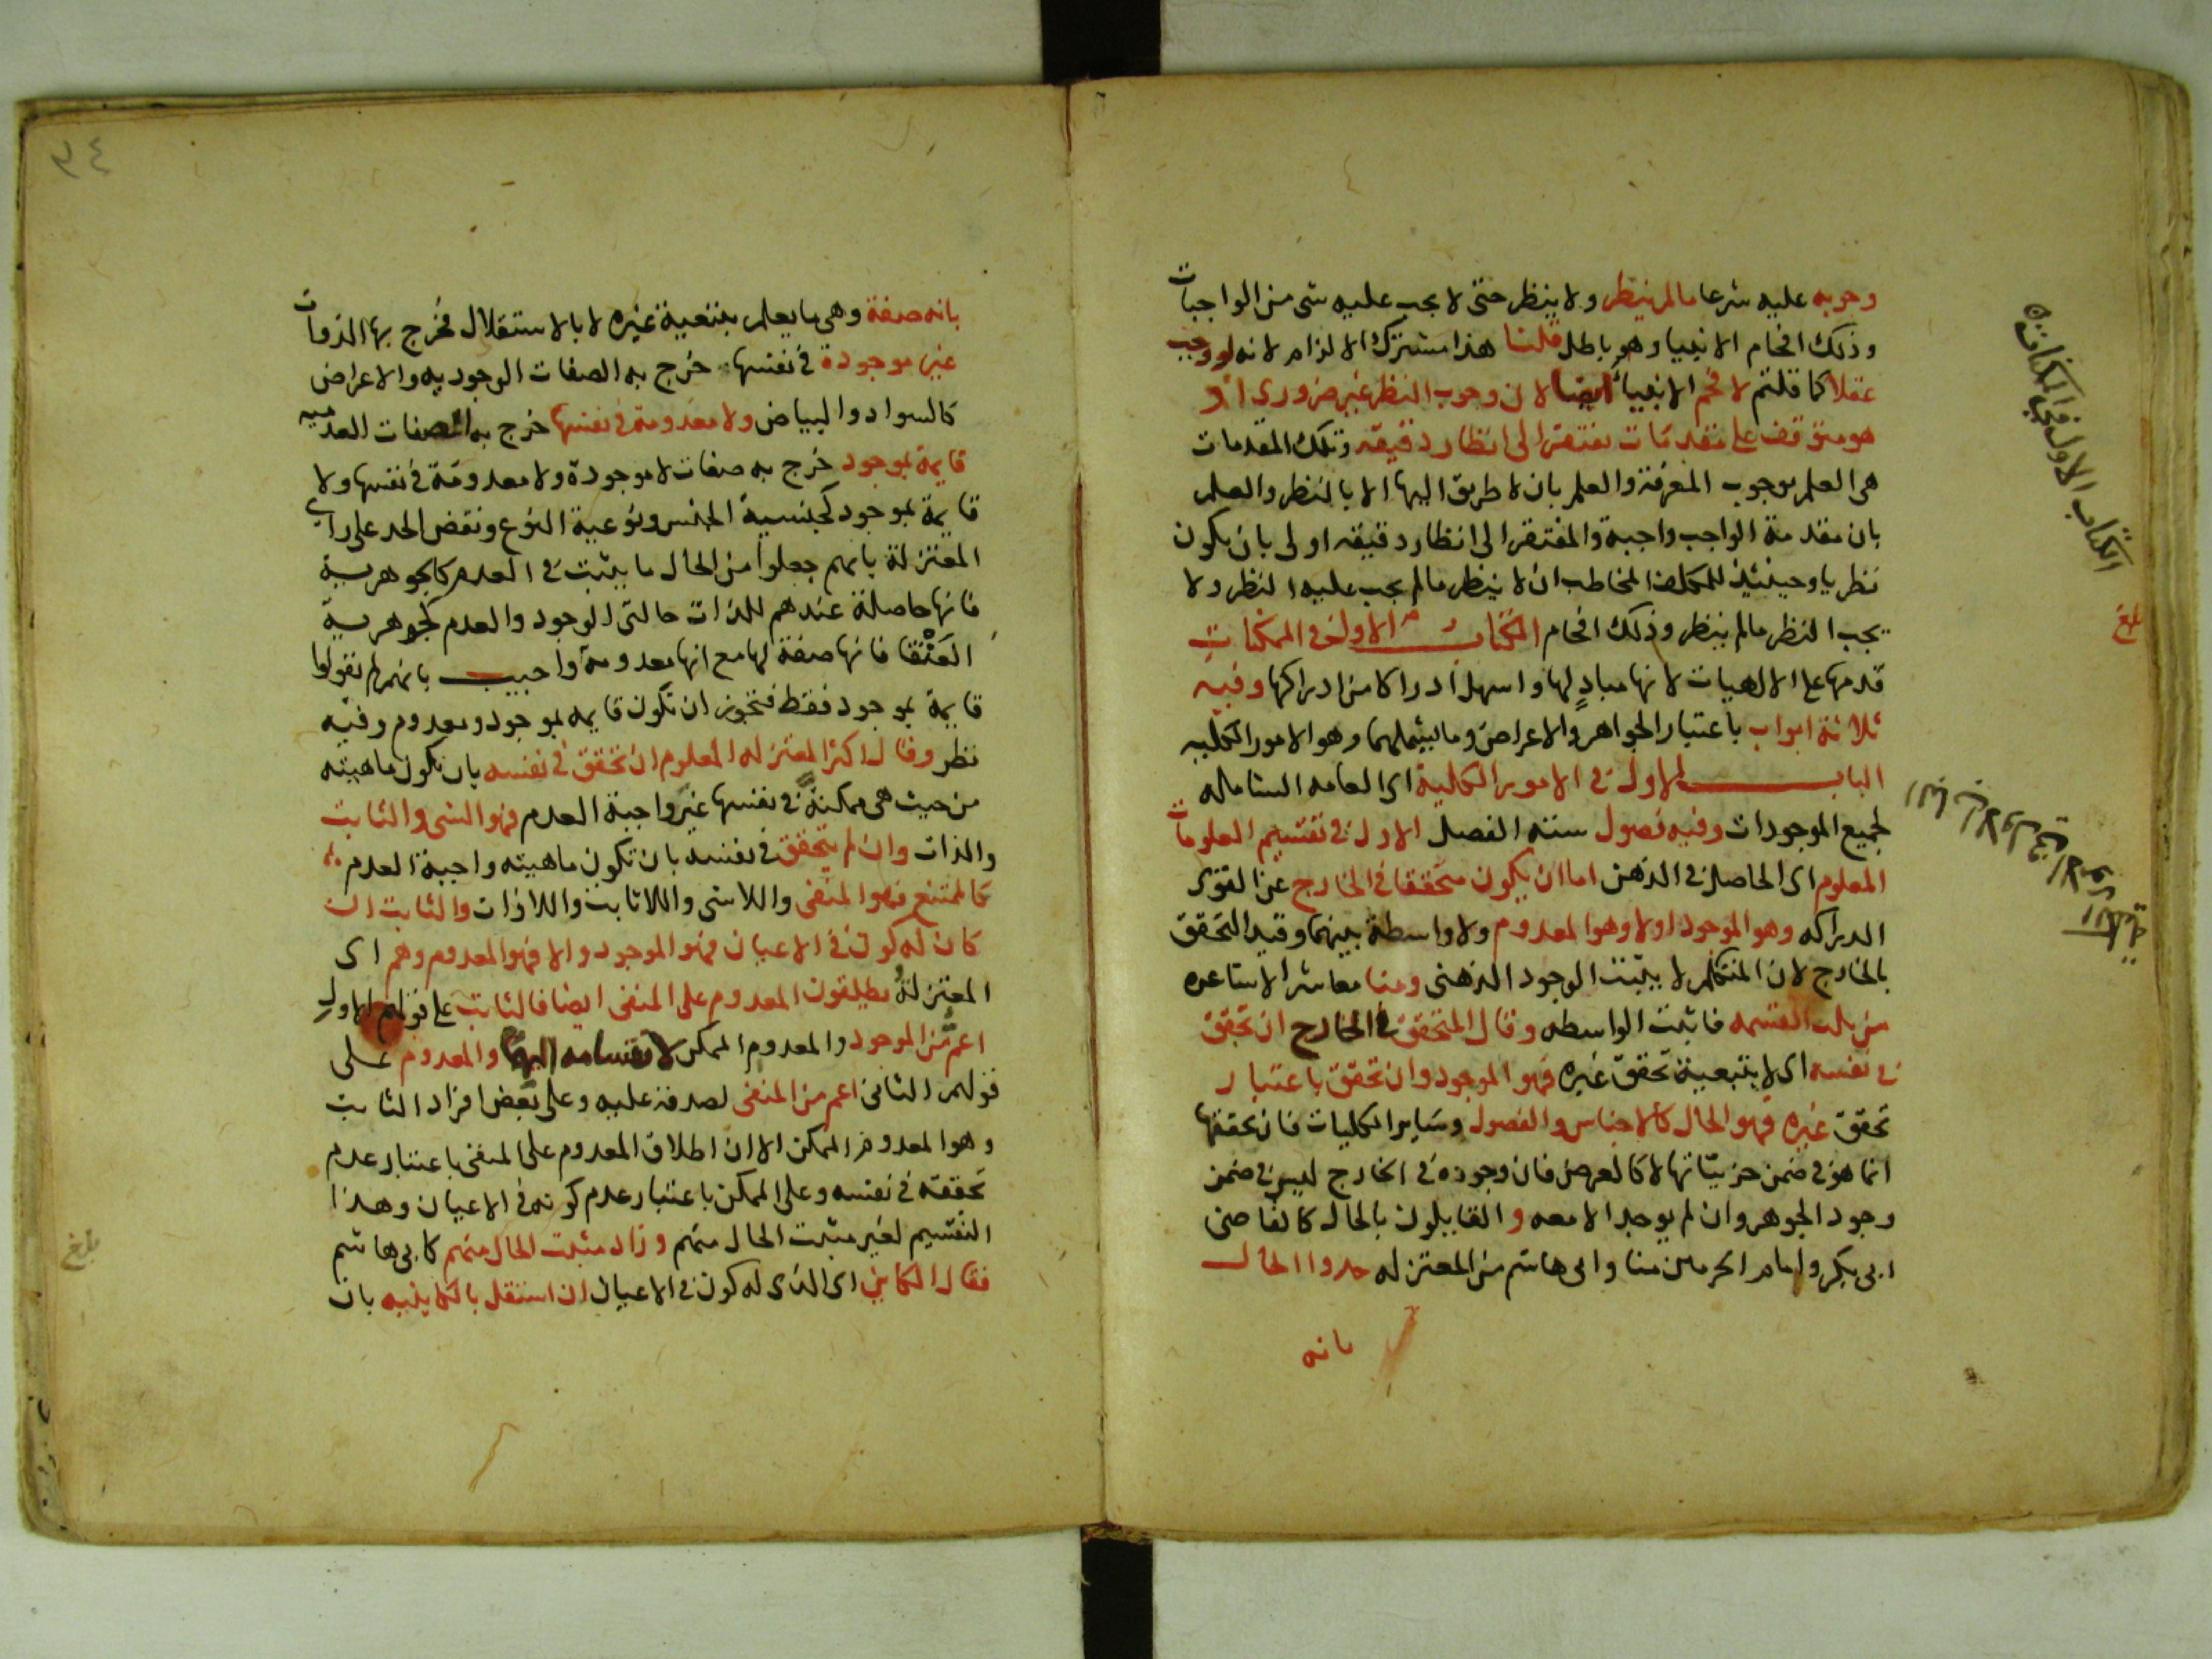 وجوبه عليه شرعا مالم ينظر ولا ينظر حتى لا يجب عليه شى من الواجبات
وذلك افحام الانبيا وهو باطل قلنا هذا مشترك الالزام لانه لو وجب
عقلا كما قلتم لافحم الانبياء ايضا لان وجوب النظر غير ضرورى اذ
هو متوقف على مقدمات تفتقر الى انظار دقيقه وتلك المقدمات
هى العلم بوجوب المعرفة والعلم بان لا طريق اليها الا بالنظر والعلم
بان مقدمة الواجب واجبة والمفتقر الى انظار دقيقه اولى بان يكون
نظريا وحينئذ للمكلف المخاطب ان لا ينظر مالم يجب عليه النظر ولا
يجب النظر مالم ينظر وذلك افحام الكتاب الاول فى الممكنات
قدمها على الالهيات لانها مبادٍ لها واسهل ادراكا من ادراكها وفيه
ثلاثة ابواب باعتبار الجواهر والاعراض وما يشملهما وهو الامور الكليه
الباب الاول فى الامور الكلية اى العامه الشامله
لجميع الموجودات وفيه فصول سته الفصل الاول فى تقسيم المعلومات
المعلوم اى الحاصل فى الذهن اما ان يكون متحققا فى الخارج عن القوى
الدراكه وهو الموجود اولا وهو المعدوم ولا واسطة بينهما وقيد التحقق
بالخارج لان المتكلم لا يثبت الوجود الذهنى ومنا معاشر الاشاعره
من ثلث القسمه فاثبت الواسطه وقال المتحقق فى الخارج ان تحقق
فى نفسه اى لا بتبعية تحقق غيره فهو الموجود وان تحقق باعتبار
تحقق غيره فهو الحال كالاجناس والفصول وساير الكليات فان تحققها
انما هو فى ضمن جزيئاتها لا كالعرض فان وجوده فى الخارج ليس فى ضمن
وجود الجوهر وان لم يوجد الا معه و القايلون بالحال كالقاضى
ابى بكر وامام الحرمين منا وابى هاشم من المعتزله حدوا الحال
بانه
الكتاب الاول فى الممكنات
بلغ
بانه صفة وهى ما يعلم بتبعية غيره لا بالاستقلال فخرج بها الذوات
غير موجودة فى نفسها خرج به الصفات الوجوديه والاعراض
كالسواد والبياض ولا معدومة فى نفسها خرج به الصفات العدميه
قايمة بموجود خرج به صفات لا موجودة ولا معدومة فى نفسها ولا
قايمة بموجود كجنسية الجنس ونوعية النوع ونقض الحد على راى
المعتزلة بانهم جعلوا من الحال ما يثبت فى العدم كالجوهرية
فانها حاصلة عندهم للذات حالتى الوجود والعدم كجوهرية
العنقا فانها صفة لها مع انها معدومة واجيب بانهم لم يقولوا
قايمة بموجود فقط فتجوز ان تكون قايمه بموجود ومعدوم وفيه
نظر وقال اكثر المعتزله المعلوم ان تحقق فى نفسه بان تكون ماهيته
من حيث هى ممكنة فى نفسها غير واجبة العدم فهو الشى والثابت
والذات وان لم يتحقق فى نفسه بان تكون ماهيته واجبة العدم
كالممتنع فهو المنفى واللاشى واللاثابت واللاذات والثابت ان
كان له كون فى الاعيان فهو الموجود والا فهو المعدوم وهم اى
المعتزلة يطلقون المعدوم على المنفى ايضا فالثابت على قولهم الاول
اعم من الموجود والمعدوم الممكن لانقسامه اليهما والمعدوم على
قولهم الثانى اعم من المنفى لصدقه عليه وعلى بعض افراد الثابت
وهو المعدوم الممكن الا ان اطلاق المعدوم على المنفى باعتبار عدم
تحققه فى نفسه وعلى الممكن باعتبار عدم كونه فى الاعيان وهذا
التقسيم لغير مثبت الحال منهم وزاد مثبت الحال منهم كابى هاشم
فقال الكاين اى الذى له كون فى الاعيان ان استقل بالكاينيه بان
بلغ